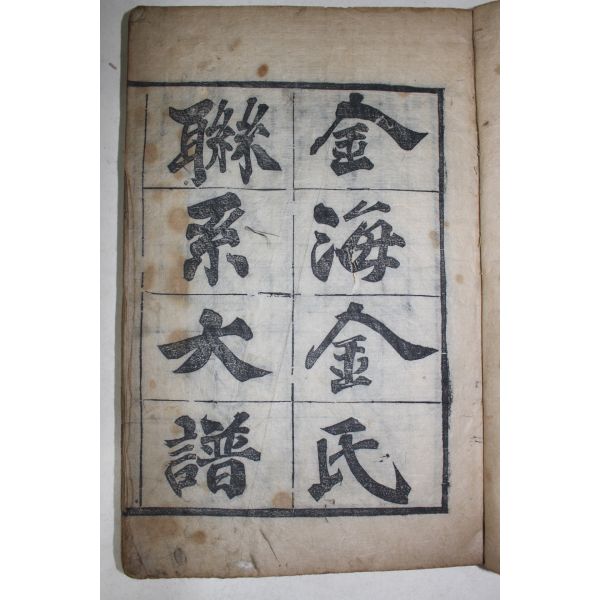 金海金氏
聯系大譜